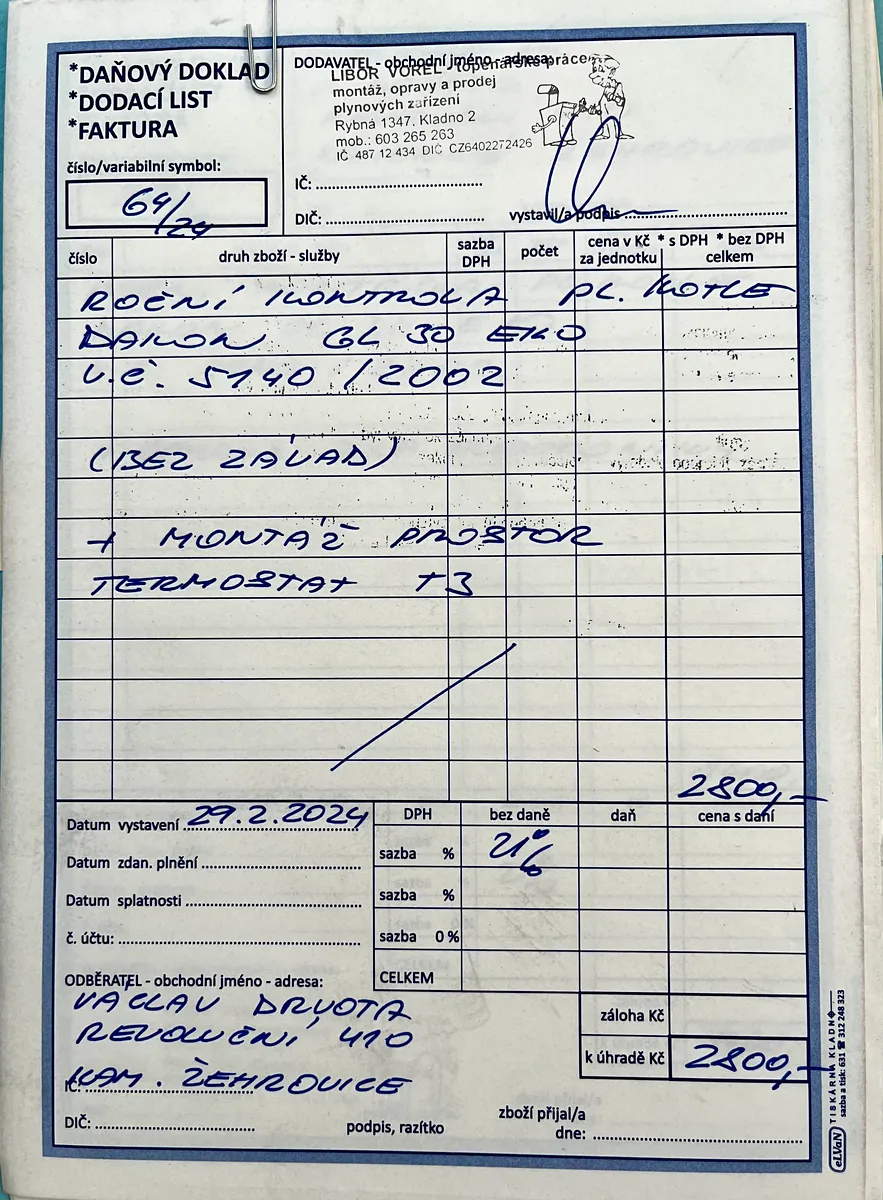 *DAŇOVÝ DOKLAD
*DODACÍ LIST
*FAKTURA
číslo/variabilní symbol:
64/24
DODAVATEL - obchodní jméno - adresa:
LIBOR VOREL - topenářské práce
montáž, opravy a prodej
plynových zařízení
Rybná 1347, Kladno 2
mob.: 603 265 263
IČ 487 12 434 DIČ CZ6402272426
IČ:
DIČ:
vystavil/a podpis
číslo druh zboží - služby sazba DPH počet cena v Kč * s DPH * bez DPH
za jednotku celkem
ROČNÍ KONTROLA PL. KOTLE
DAKON GL 30 EKO
V.Č. 5140 / 2002
(BEZ ZÁVAD)
+ MONTÁŽ PROSTOR
TERMOSTAT T3
2800,-
Datum vystavení 29.2.2024
Datum zdan. plnění
Datum splatnosti
č. účtu:
DPH bez daně daň cena s daní
sazba % 21%
sazba %
sazba 0 %
CELKEM
ODBĚRATEL - obchodní jméno - adresa:
VÁCLAV DRVOTA
REVOLUČNÍ 410
KAM. ŽEHROVICE
IČ:
DIČ:
záloha Kč
k úhradě Kč 2800,-
podpis, razítko
zboží přijal/a
dne:
eLVaN TISKÁRNA KLADNO
sazba a tisk: 631 ☎ 312 248 323